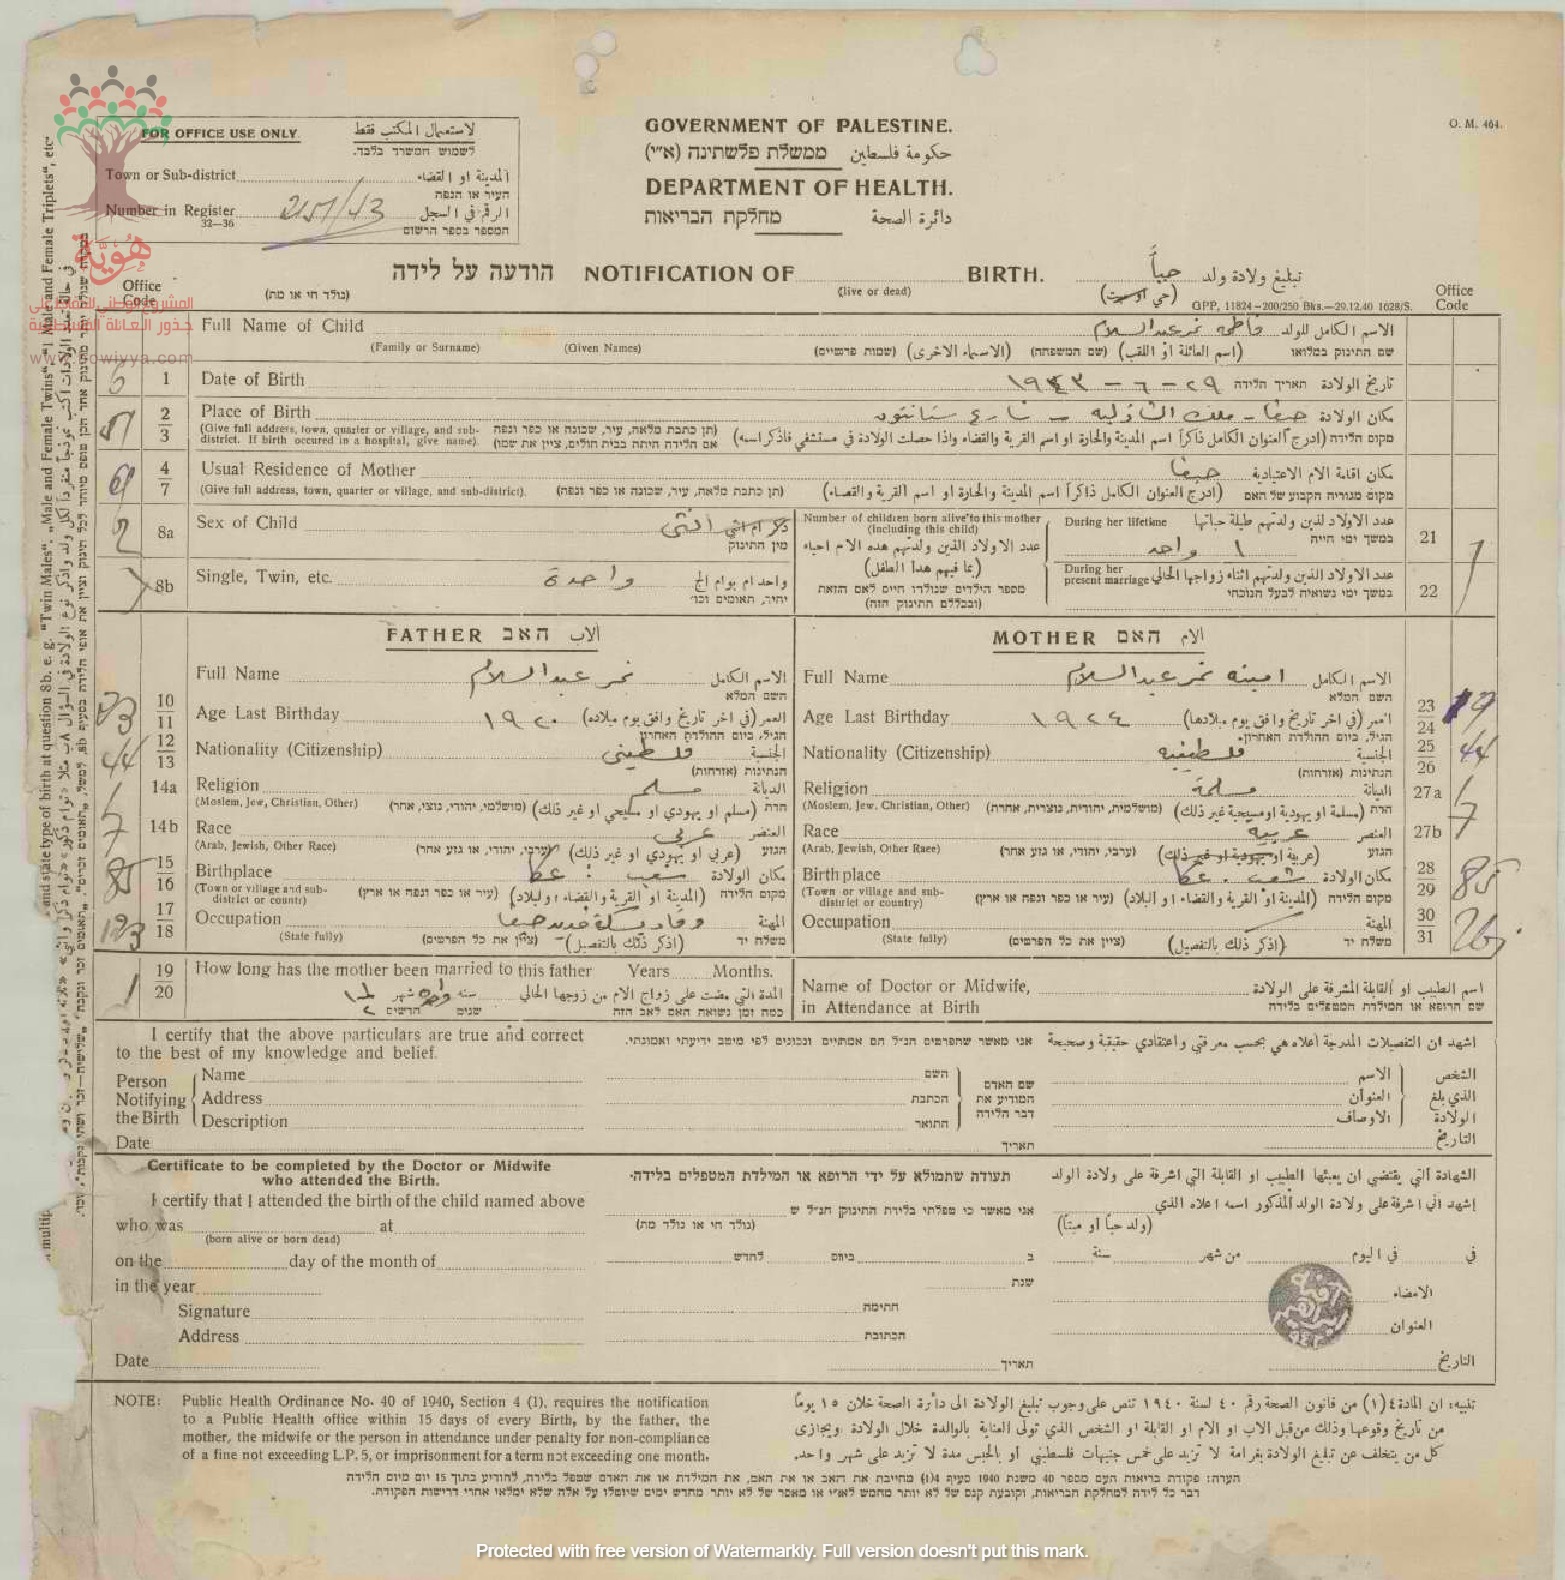 O. M. 464.
FOR OFFICE USE ONLY. لاستعمال المكتب فقط
לשמוש המשרד בלבד.
Town or Sub-district المدينة او القضاء
העיר או הנפה
Number in Register 32—36 الرقم في السجل
המספר בספר הרשום
GOVERNMENT OF PALESTINE.
ממשלת פלשתינה (א״י) حكومة فلسطين
DEPARTMENT OF HEALTH.
מחלקת הבריאות دائرة الصحة
هُوِيَّة
المشروع الوطني للحفاظ على
جذور العائلة الفلسطينية
הודעה על לידה NOTIFICATION OF BIRTH. تبليغ ولادة ولد حياً
(נולד חי או מת) (live or dead) (حي او ميت)
GPP, 11824—200/250 Bks.—29.12.40 1628/S.
Office Code Office Code
Full Name of Child الاسم الكامل للولد فاطمه نمر عبدالسلام
(Family or Surname) (Given Names) (שמות פרטיים) (الاسماء الاخرى) (שם המשפחה) (اسم العائلة او اللقب) שם התינוק במלואו
1 Date of Birth تاريخ الولادة תאריך הלידה ٢٩ - ٦ - ١٩٤٣
2/3 Place of Birth مكان الولادة حيفا - ملك - شارع ستانتون
(Give full address, town, quarter or village, and sub-district. If birth occured in a hospital, give name). (תן כתבת מלאה, עיר, שכונה או כפר ונפה אם הלידה היתה בבית חולים, ציין את שמו) מקום הלידה (ادرج العنوان الكامل ذاكراً اسم المدينة والحارة او اسم القرية والقضاء واذا حصلت الولادة في مستشفى فاذكر اسمه)
4/7 Usual Residence of Mother مكان اقامة الام الاعتيادية حيفا
(Give full address, town, quarter or village, and sub-district). (תן כתבת מלאה, עיר, שכונה או כפר ונפה) (ادرج العنوان الكامل ذاكراً اسم المدينة والحارة او اسم القرية والقضاء) מקום מגוריה הקבוע של האם
8a Sex of Child ذكر ام انثى انثى
מין התינוק
8b Single, Twin, etc. واحدة واحد ام توام الخ
יחיד, תאומים וכו׳
Number of children born alive to this mother (including this child)
عدد الاولاد الذين ولدتهم هذه الام احياء
(بما فيهم هذا الطفل)
מספר הילדים שנולדו חיים לאם הזאת
(ובכללם התינוק הזה)
During her lifetime عدد الاولاد الذين ولدتهم طيلة حياتها 21
במשך ימי חייה
١ واحد
During her present marriage عدد الاولاد الذين ولدتهم اثناء زواجها الحالي 22
במשך ימי נשואיה לבעל הנוכחי
FATHER האב الاب
Full Name نمر عبدالسلام الاسم الكامل
השם המלא
10/11 Age Last Birthday ١٩٢٠ العمر (في اخر تاريخ وافق يوم ميلاده)
הגיל, ביום ההולדת האחרון
12/13 Nationality (Citizenship) فلسطيني الجنسية
הנתינות (אזרחות)
14a Religion مسلم الديانة
(Moslem, Jew, Christian, Other) (מושלמי, יהודי, נוצי, אחר) (مسلم او يهودي او مسيحي او غير ذلك) הדת
14b Race عربي العنصر
(Arab, Jewish, Other Race) (ערבי, יהודי, או גזע אחר) (عربي او يهودي او غير ذلك) הגזע
15/16 Birthplace شعب عكا مكان الولادة
(Town or village and sub-district or country) (עיר או כפר ונפה או ארץ) (المدينة او القرية والقضاء او البلاد) מקום הלידה
17/18 Occupation المهنة
(State fully) (ציין את כל הפרטים) (اذكر ذلك بالتفصيل) משלח יד
MOTHER האם الام
Full Name امينه نمر عبدالسلام الاسم الكامل
השם המלא
Age Last Birthday ١٩٢٤ العمر (في اخر تاريخ وافق يوم ميلادها) 23/24
הגיל, ביום ההולדת האחרון
Nationality (Citizenship) فلسطينيه الجنسية 25/26
הנתינות (אזרחות)
Religion مسلمة الديانة 27a
(Moslem, Jew, Christian, Other) (מושלמית, יהודית, נוצרית, אחרת) (مسلمة او يهودية او مسيحية او غير ذلك) הדת
Race عربيه العنصر 27b
(Arab, Jewish, Other Race) (ערבי, יהודי, או גזע אחר) (عربية او يهودية او غير ذلك) הגזע
Birthplace شعب . عكا مكان الولادة 28/29
(Town or village and sub-district or country) (עיר או כפר ונפה או ארץ) (المدينة او القرية والقضاء او البلاد) מקום הלידה
Occupation المهنة 30/31
(State fully) (ציין את כל הפרטים) (اذكر ذلك بالتفصيل) משלח יד
19/20 How long has the mother been married to this father Years Months.
المدة التي مضت على زواج الام من زوجها الحالي سنة شهر
כמה זמן נשואה האם לאב הזה שנים חדשים
Name of Doctor or Midwife, اسم الطبيب او القابلة المشرفة على الولادة
in Attendance at Birth שם הרופא או המילדת המטפלים בלידה
I certify that the above particulars are true and correct
to the best of my knowledge and belief.
אני מאשר שהפרטים הנ״ל הם אמתיים ונכונים לפי מיטב ידיעתי ואמונתי.
اشهد ان التفصيلات المدرجة أعلاه هي بحسب معرفتي واعتقادي حقيقية وصحيحة
Person Notifying the Birth
Name השם الاسم
Address הכתבת العنوان
Description התואר الاوصاف
שם האדם המודיע את דבר הלידה
الشخص الذي بلغ الولادة
Date תאריך التاريخ
Certificate to be completed by the Doctor or Midwife
who attended the Birth.
תעודה שתמולא על ידי הרופא או המילדת המטפלים בלידה.
الشهادة التي يقتضي ان يعبئها الطبيب او القابلة التي اشرفت على ولادة الولد
I certify that I attended the birth of the child named above
אני מאשר כי טפלתי בלידת התינוק הנ״ל ש
اشهد اني اشرفت على ولادة الولد المذكور اسمه اعلاه الذي
who was at (נולד חי או נולד מת) (ولد حياً او ميتاً)
(born alive or born dead)
on the day of the month of ב ביום לחדש في في اليوم من شهر سنة
in the year שנת
Signature חתימה الامضاء
Address הכתובת العنوان
Date תאריך التاريخ
NOTE: Public Health Ordinance No. 40 of 1940, Section 4 (1), requires the notification
to a Public Health office within 15 days of every Birth, by the father, the
mother, the midwife or the person in attendance under penalty for non-compliance
of a fine not exceeding L.P. 5, or imprisonment for a term not exceeding one month.
تنبيه: ان المادة ٤(١) من قانون الصحة رقم ٤٠ لسنة ١٩٤٠ تنص على وجوب تبليغ الولادة الى دائرة الصحة خلال ١٥ يوماً
من تاريخ وقوعها وذلك من قبل الاب او الام او القابلة او الشخص الذي تولى العناية بالوالدة خلال الولادة ويجازى
كل من يتخلف عن تبليغ الولادة بغرامة لا تزيد على خمس جنيهات فلسطيني او بالحبس مدة لا تزيد على شهر واحد.
הערה: פקודת בריאות העם מספר 40 משנת 1940 סעיף 4(1) מחייבת את האב או את האם, את המילדת או את האדם שטפל בלידה, להודיע בתוך 15 יום מיום הלידה
דבר כל לידה למחלקת הבריאות, וקובעת קנס של לא יותר מחמש לא״י או מאסר של לא יותר מחדש ימים שיוטלו על אלה שלא ימלאו אחרי דרישות הפקודה.
Protected with free version of Watermarkly. Full version doesn't put this mark.